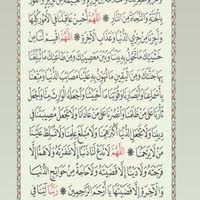 بِالْجَنَّةِ وَالنَّجَاةَ مِنَ النَّارِ ۞ اَللّٰهُمَّ أَحْسِنْ عَاقِبَتَنَا فِي الْأُمُورِ كُلِّهَا
وَأَجِرْنَا مِنْ خِزْيِ الدُّنْيَا وَعَذَابِ الْآخِرَةِ ۞ اَللّٰهُمَّ اقْسِمْ لَنَا مِنْ
خَشْيَتِكَ مَا تَحُولُ بِهِ بَيْنَنَا وَبَيْنَ مَعْصِيَتِكَ وَمِنْ طَاعَتِكَ مَا تُبَلِّغُنَا
بِهَا جَنَّتَكَ وَمِنَ الْيَقِينِ مَا تُهَوِّنُ بِهِ عَلَيْنَا مَصَائِبَ الدُّنْيَا وَمَتِّعْنَا
بِأَسْمَاعِنَا وَأَبْصَارِنَا وَقُوَّتِنَا مَا أَحْيَيْتَنَا وَاجْعَلْهُ الْوَارِثَ مِنَّا وَاجْعَلْ
ثَأْرَنَا عَلَى مَنْ ظَلَمَنَا وَانْصُرْنَا عَلَى مَنْ عَادَانَا وَلَا تَجْعَلْ مُصِيبَتَنَا فِي
دِينِنَا وَلَا تَجْعَلِ الدُّنْيَا أَكْبَرَ هَمِّنَا وَلَا مَبْلَغَ عِلْمِنَا وَلَا تُسَلِّطْ عَلَيْنَا
مَنْ لَا يَرْحَمُنَا ۞ اَللّٰهُمَّ لَا تَدَعْ لَنَا ذَنْبًا إِلَّا غَفَرْتَهُ وَلَا هَمًّا إِلَّا
فَرَّجْتَهُ وَلَا دَيْنًا إِلَّا قَضَيْتَهُ وَلَا حَاجَةً مِنْ حَوَائِجِ الدُّنْيَا
وَالْآخِرَةِ إِلَّا قَضَيْتَهَا يَا أَرْحَمَ الرَّاحِمِينَ ۞ رَبَّنَا آتِنَا فِي